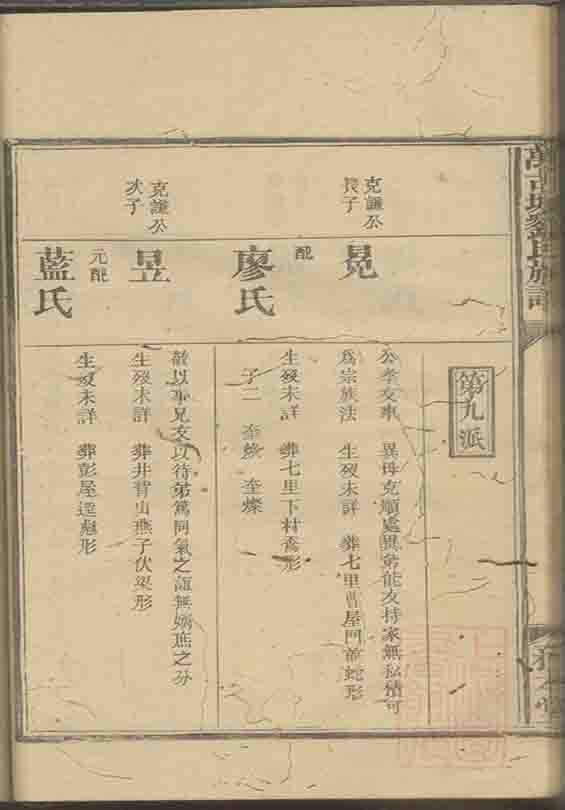 第九派
克謙公
長子
晃
公孝友事異母克順處異弟能友持家無私積可
為宗族法 生歿未詳 葬七里曹屋門前蛇形
配
廖氏
生歿未詳 葬七里下村鴦形
子二 奎燦
克謙公
次子
昱
敬以事兄友以待弟篤同氣之誼無嫡庶之分
生歿未詳 葬井背山燕子伏梁形
元配
藍氏
生歿未詳 葬彭屋逕彪形